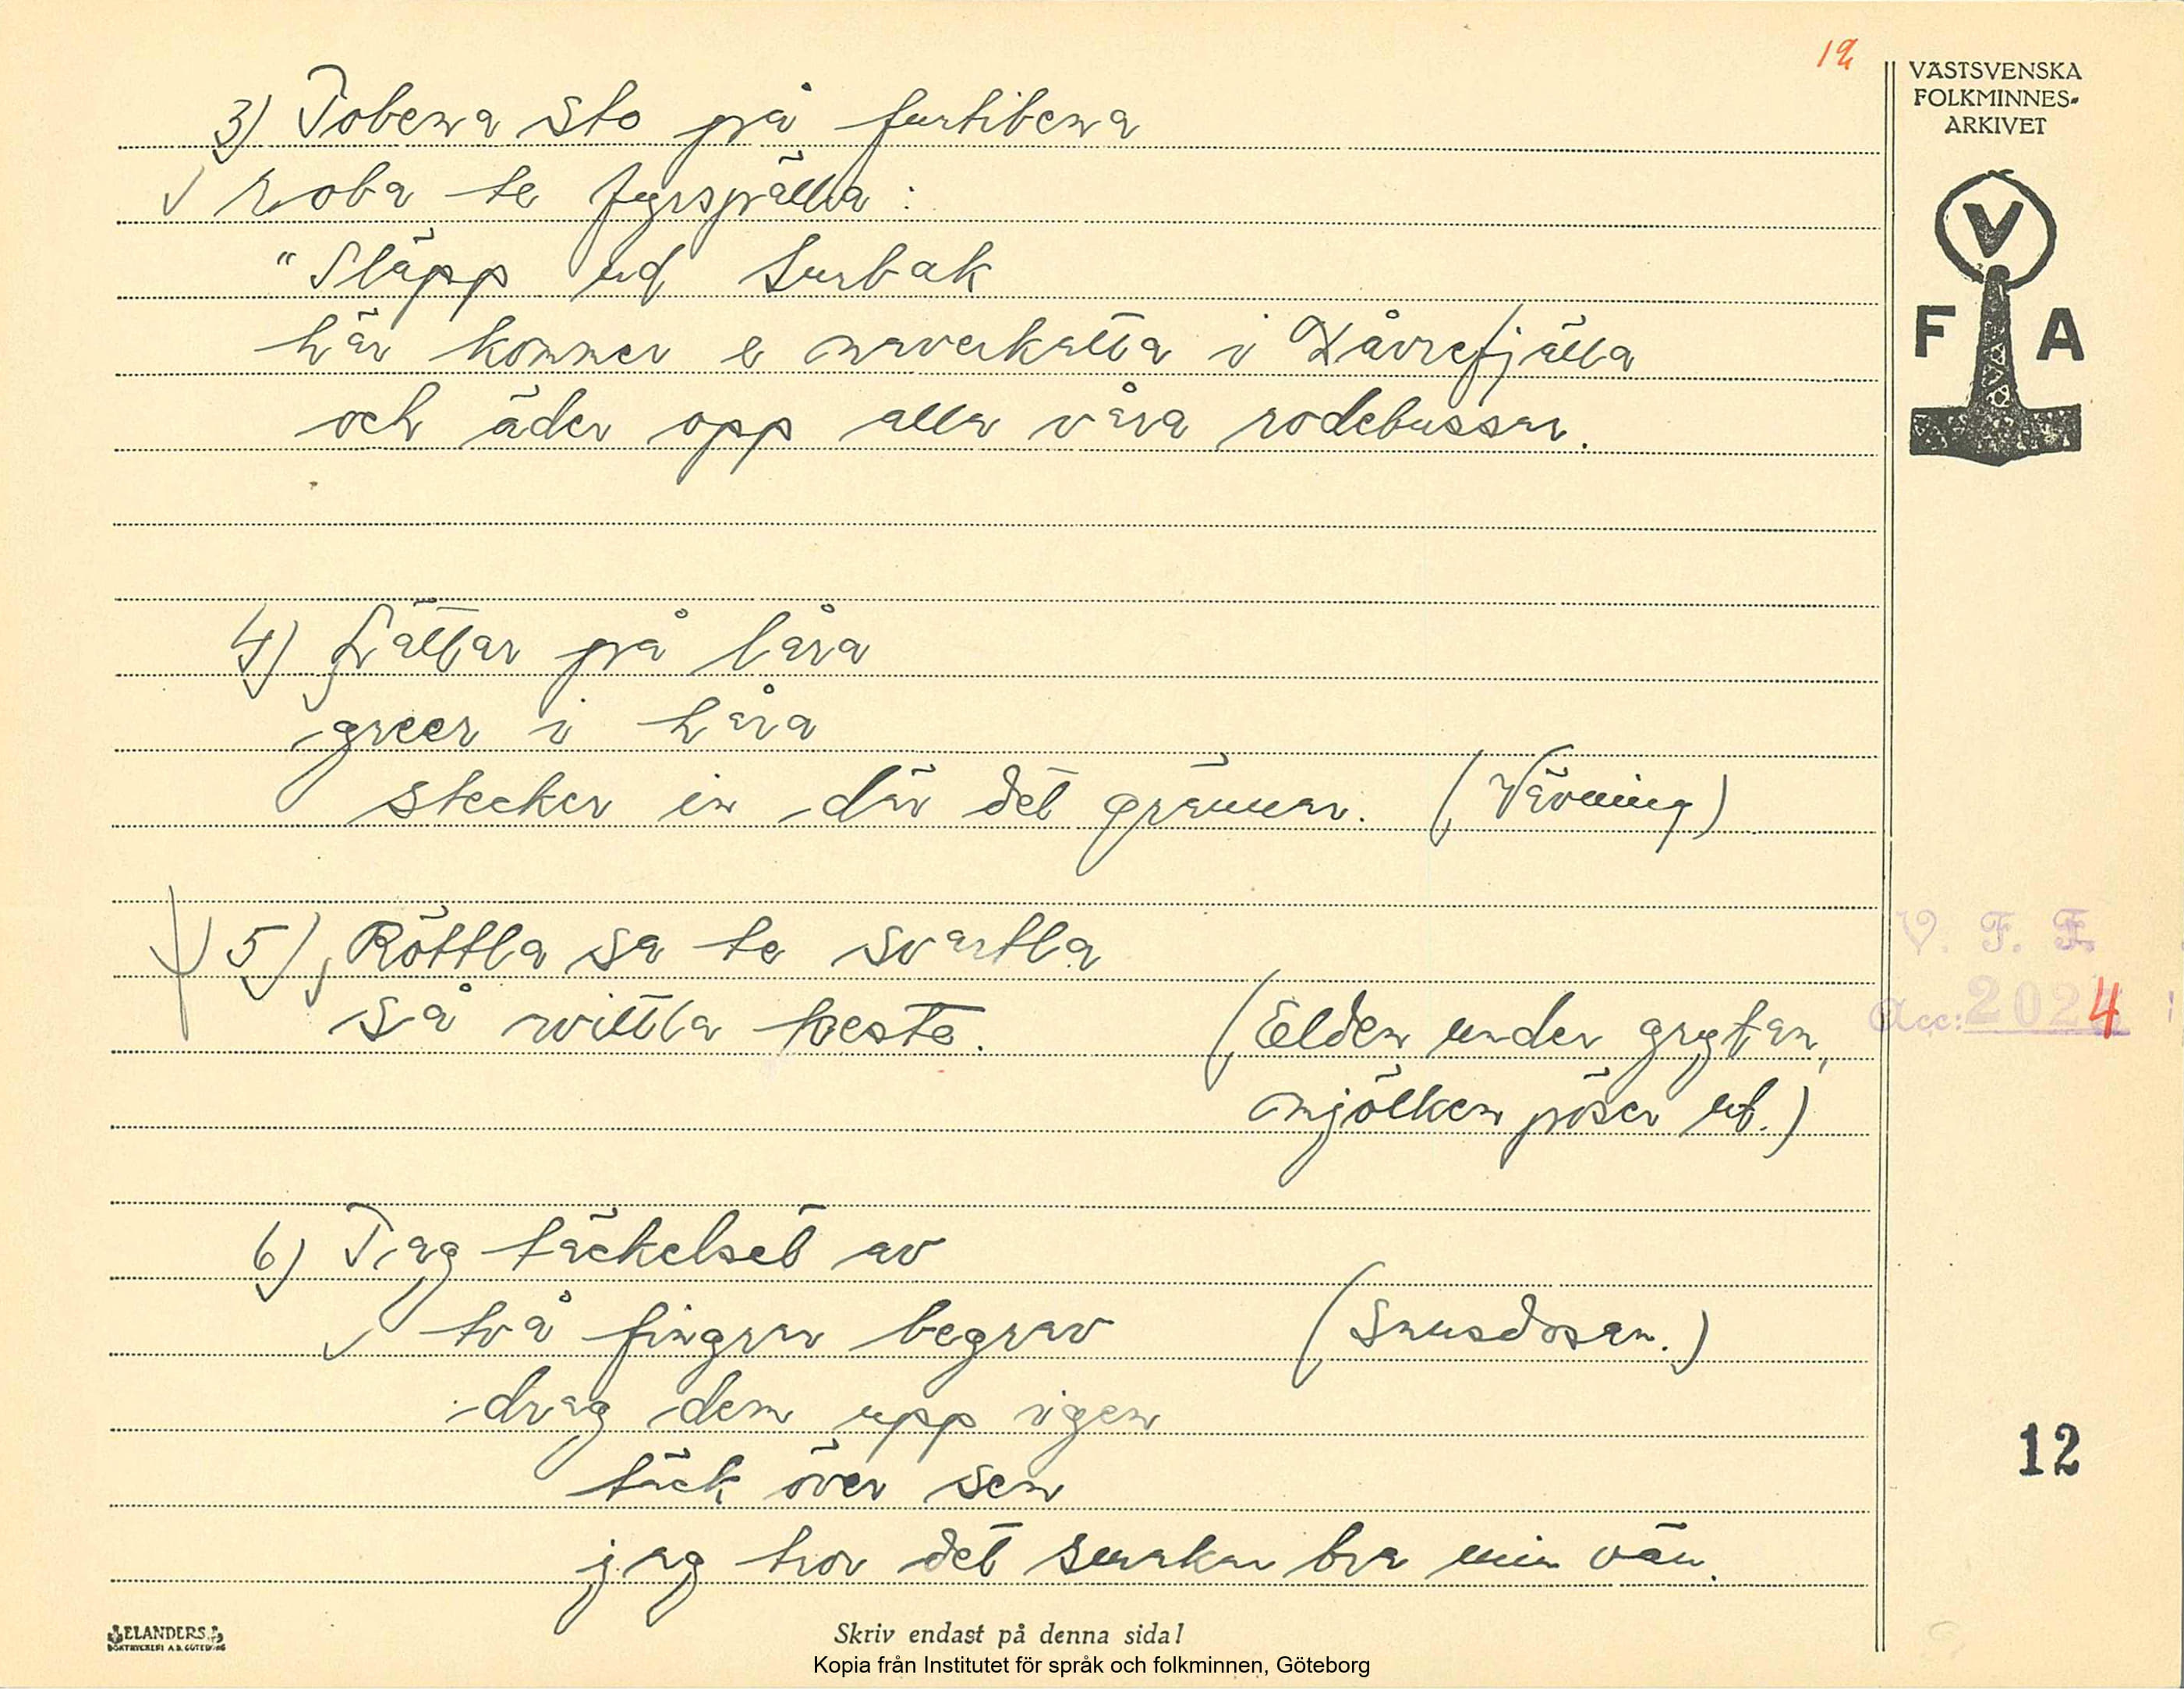 12
VÄSTSVENSKA
FOLKMINNES-
ARKIVET
V
F A
3) Tobena sto på furtibena
roba te fyrspälla:
"Släpp ud Surbak
här kommer e maverkatta i Dåvrefjälla
och äder opp alla våra rodebussar.
4) Sättar på låra
greer i håra
stecker in där det grännar. (Vävning)
5) Röttla sa te svartla
så vittla
(Elden under grytan,
mjölken pöser ut.)
6) Tag täckelset av
två fingrar begrav (Snusdosan.)
drag dem upp igen
täck över sen
jag tror det smakar bra min vän.
V. F. F.
Acc: 2024
12
ELANDERS
BOKTRYCKERI A.B. GÖTEBORG
Skriv endast på denna sida!
Kopia från Institutet för språk och folkminnen, Göteborg